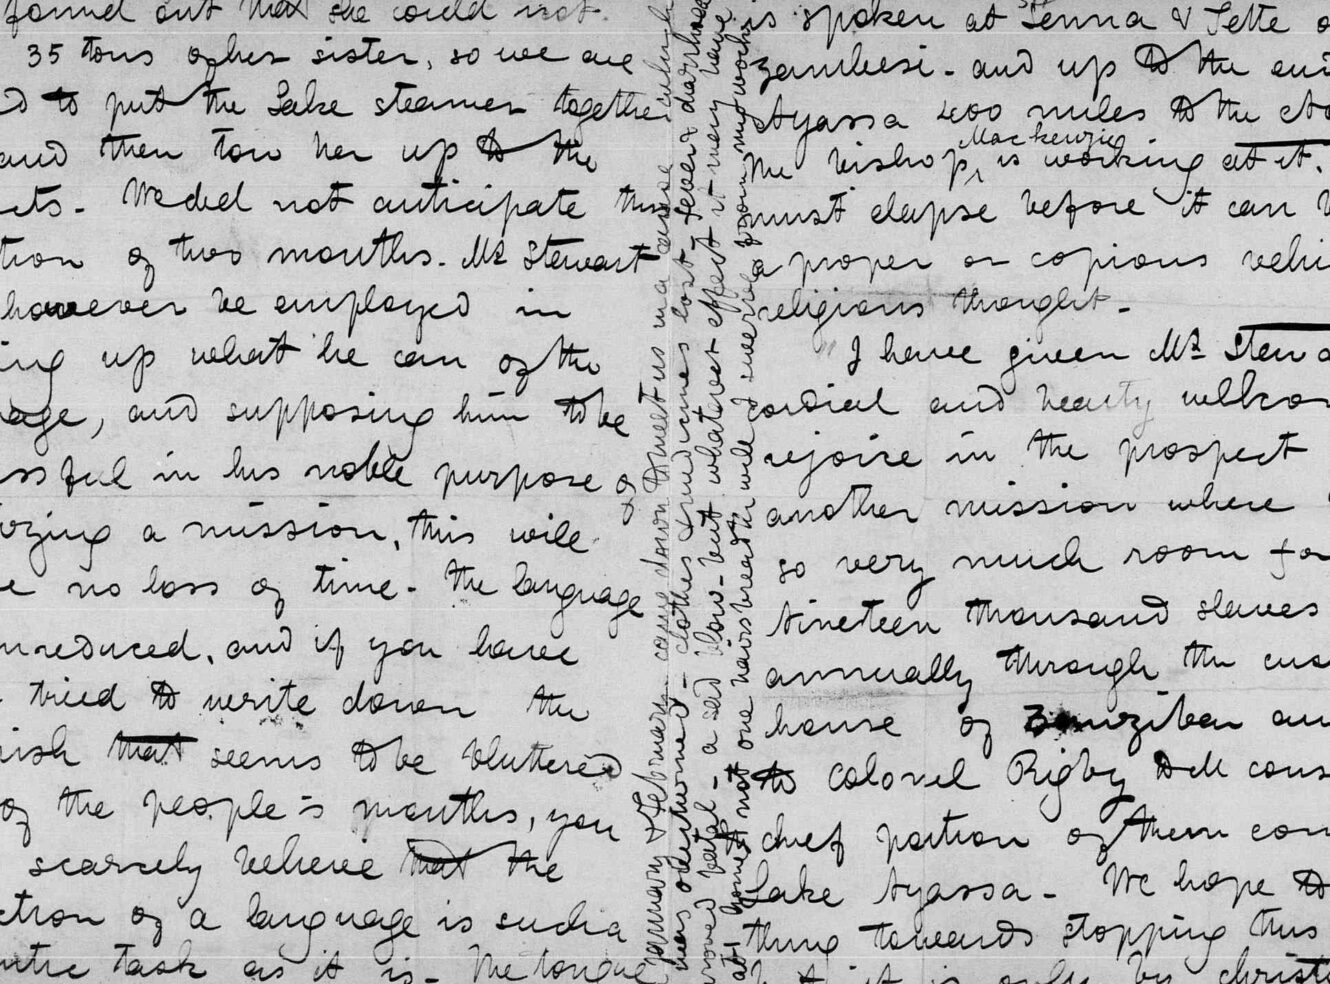 found out that she could not
35 tons of her sister, so we are
d to put the Lake steamer togethe
and then tow her up to the
cts. We did not anticipate this
tion of two months. Mr Stewart
however be employed in
ing up what he can of the
age, and supposing him to be
ssful in his noble purpose of
izing a mission, this will
e no loss of time. The language
nreduced, and if you have
tried to write down the
ish that seems to be bluttered
of the people's mouths, you
scarcely believe that the
ction of a language is such a
ntic task as it is. The tongue
January & February came down to meet us in a canoe which
was overturned - clothes & medicines lost - fever & diarrhoea
proved fatal - a sad blow - but whatever effect it may have
at home not one hairsbreadth will I swerve from my work
is spoken at Senna & Tette
Zambesi - and up to the end
Nyassa 400 miles to the
The bishop Mackenzie is working at it.
must elapse before it can
a proper or copious vehi
religious thought -
I have given Mr Stewa
cordial and hearty welcom
rejoice in the prospect
another mission where
so very much room for
Nineteen thousand slaves
annually through the cus
house of Zanzibar
to Colonel Rigby H M cons
chief portion of them com
Lake Nyassa - We hope to
thing towards stopping this
it is only by christi